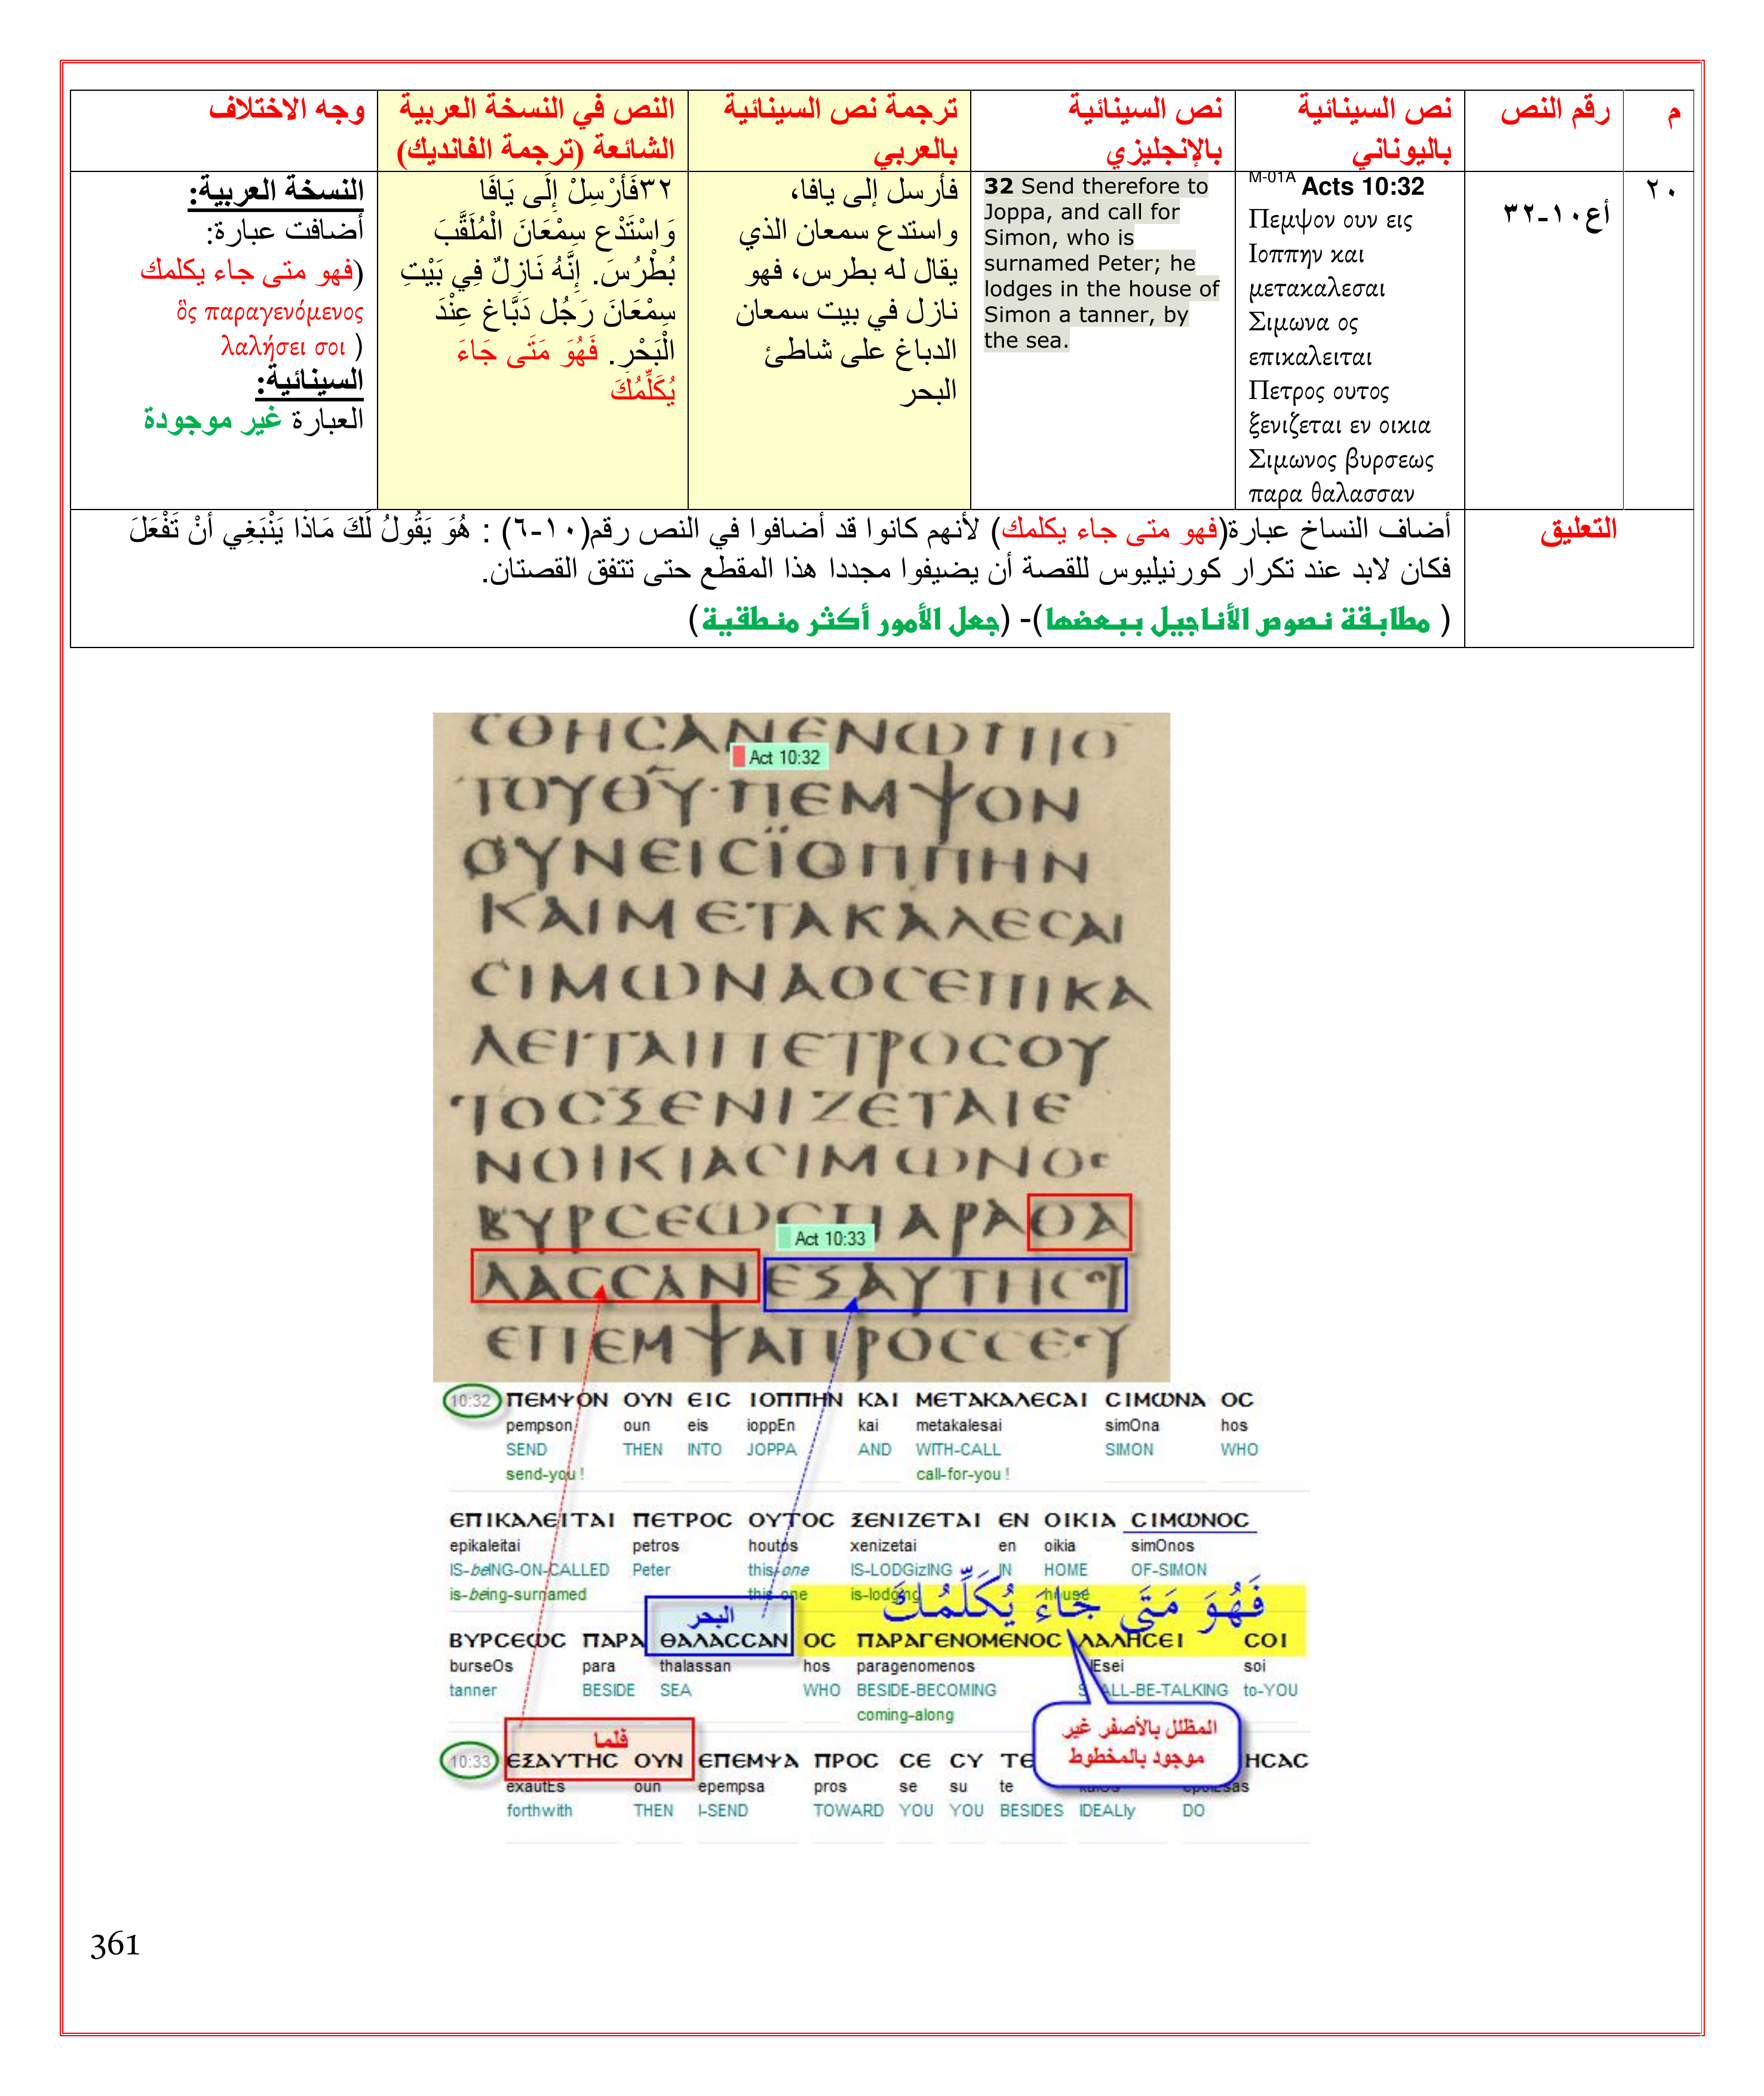 م
رقم النص
نص السينائية
باليوناني
نص السينائية
بالإنجليزي
ترجمة نص السينائية
بالعربي
النص في النسخة العربية
الشائعة (ترجمة الفانديك)
وجه الاختلاف
٢٠
أع١٠-٣٢
M-01A Acts 10:32
Πεμψον ουν εις
Ιοππην και
μετακαλεσαι
Σιμωνα ος
επικαλειται
Πετρος ουτος
ξενιζεται εν οικια
Σιμωνος βυρσεως
παρα θαλασσαν
32 Send therefore to
Joppa, and call for
Simon, who is
surnamed Peter; he
lodges in the house of
Simon a tanner, by
the sea.
فأرسل إلى يافا،
واستدع سمعان الذي
يقال له بطرس، فهو
نازل في بيت سمعان
الدباغ على شاطئ
البحر
٣٢فَأَرْسِلْ إِلَى يَافَا
وَاسْتَدْعِ سِمْعَانَ الْمُلَقَّبَ
بُطْرُسَ. إِنَّهُ نَازِلٌ فِي بَيْتِ
سِمْعَانَ رَجُل دَبَّاغ عِنْدَ
الْبَحْرِ. فَهُوَ مَتَى جَاءَ
يُكَلِّمُكَ
النسخة العربية:
أضافت عبارة:
(فهو متى جاء يكلمك
ὃς παραγενόμενος
λαλήσει σοι )
السينائية:
العبارة غير موجودة
التعليق
أضاف النساخ عبارة(فهو متى جاء يكلمك) لأنهم كانوا قد أضافوا في النص رقم(١٠-٦) : هُوَ يَقُولُ لَكَ مَاذَا يَنْبَغِي أَنْ تَفْعَلَ
فكان لابد عند تكرار كورنيليوس للقصة أن يضيفوا مجددا هذا المقطع حتى تتفق القصتان.
( مطابقة نصوص الأناجيل ببعضها)- (جعل الأمور أكثر منطقية)
ϹΘΗϹΑΝΕΝΩΠΙΟ
Act 10:32
ΤΟΥΘΥ·ΠΕΜΨΟΝ
ΟΥΝΕΙϹΪΟΠΠΗΝ
ΚΑΙΜΕΤΑΚΑΛΕϹΑΙ
ϹΙΜΩΝΑΟϹΕΠΙΚΑ
ΛΕΙΤΑΙΠΕΤΡΟϹΟΥ
ΤΟϹΞΕΝΙΖΕΤΑΙΕ
ΝΟΙΚΙΑϹΙΜΩΝΟϹ
ΒΥΡϹΕΩϹΠΑΡΑΘΑ
Act 10:33
ΛΑϹϹΑΝΕΞΑΥΤΗϹΟΥ
ΕΠΕΜΨΑΠΡΟϹϹΕϹΥ
10:32 ΠΕΜΨΟΝ ΟΥΝ ΕΙϹ ΙΟΠΠΗΝ ΚΑΙ ΜΕΤΑΚΑΛΕϹΑΙ ϹΙΜΩΝΑ ΟϹ
pempson oun eis ioppEn kai metakalesai simOna hos
SEND THEN INTO JOPPA AND WITH-CALL SIMON WHO
send-you ! call-for-you !
ΕΠΙΚΑΛΕΙΤΑΙ ΠΕΤΡΟϹ ΟΥΤΟϹ ΞΕΝΙΖΕΤΑΙ ΕΝ ΟΙΚΙΑ ϹΙΜΩΝΟϹ
epikaleitai petros houtos xenizetai en oikia simOnos
IS-beING-ON-CALLED Peter this-one IS-LODGizING IN HOME OF-SIMON
is-being-surnamed this-one is-lodging house
البحر
فَهُوَ مَتَى جَاءَ يُكَلِّمُكَ
ΒΥΡϹΕΩϹ ΠΑΡΑ ΘΑΛΑϹϹΑΝ ΟϹ ΠΑΡΑΓΕΝΟΜΕΝΟϹ ΛΑΛΗϹΕΙ ϹΟΙ
burseOs para thalassan hos paragenomenos soi
tanner BESIDE SEA WHO BESIDE-BECOMING SHALL-BE-TALKING to-YOU
coming-along
المظلل بالأصفر غير
موجود بالمخطوط
فلما
10:33 ΕΞΑΥΤΗϹ ΟΥΝ ΕΠΕΜΨΑ ΠΡΟϹ ϹΕ ϹΥ ΤΕ ΗϹΑϹ
exautEs oun epempsa pros se su te
forthwith THEN I-SEND TOWARD YOU YOU BESIDES IDEALly DO
361